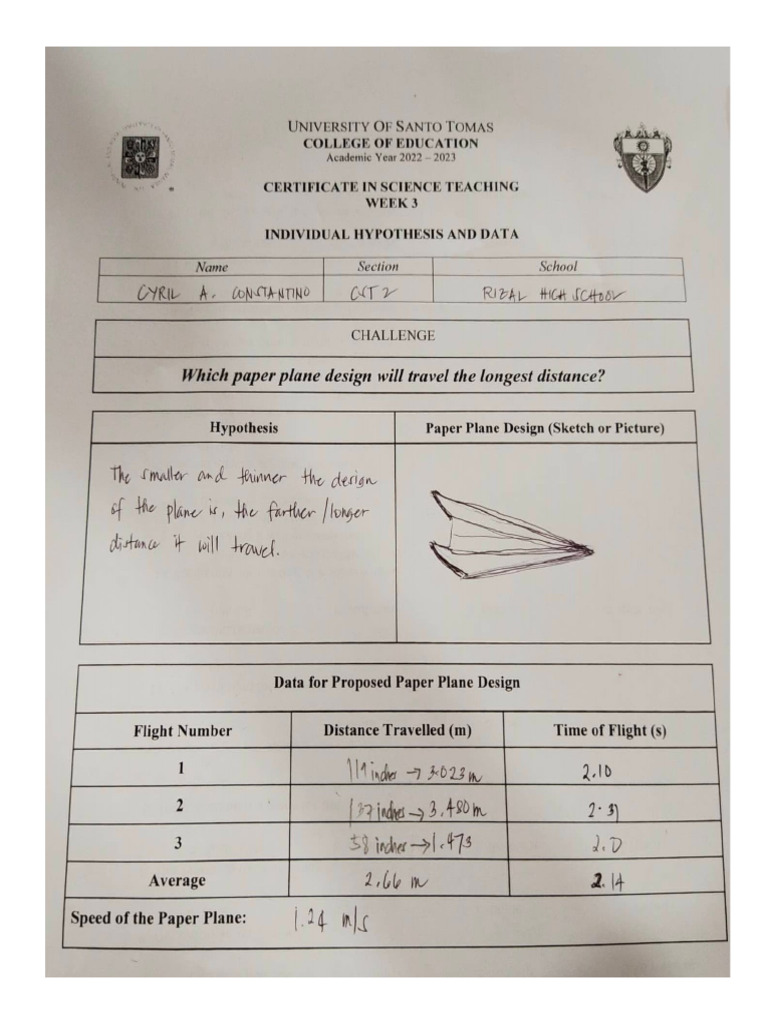 UNIVERSITY OF SANTO TOMAS
COLLEGE OF EDUCATION
Academic Year 2022 – 2023
CERTIFICATE IN SCIENCE TEACHING
WEEK 3
INDIVIDUAL HYPOTHESIS AND DATA
Name Section School
CYRIL A. CONSTANTINO CST 2 RIZAL HIGH SCHOOL
CHALLENGE
Which paper plane design will travel the longest distance?
Hypothesis Paper Plane Design (Sketch or Picture)
The smaller and thinner the design
of the plane is, the farther/longer
distance it will travel.
Data for Proposed Paper Plane Design
Flight Number Distance Travelled (m) Time of Flight (s)
1 119 inches → 3.023 m 2.10
2 137 inches → 3.480 m 2.31
3 58 inches → 1.473 2.0
Average 2.66 m 2.14
Speed of the Paper Plane: 1.24 m/s